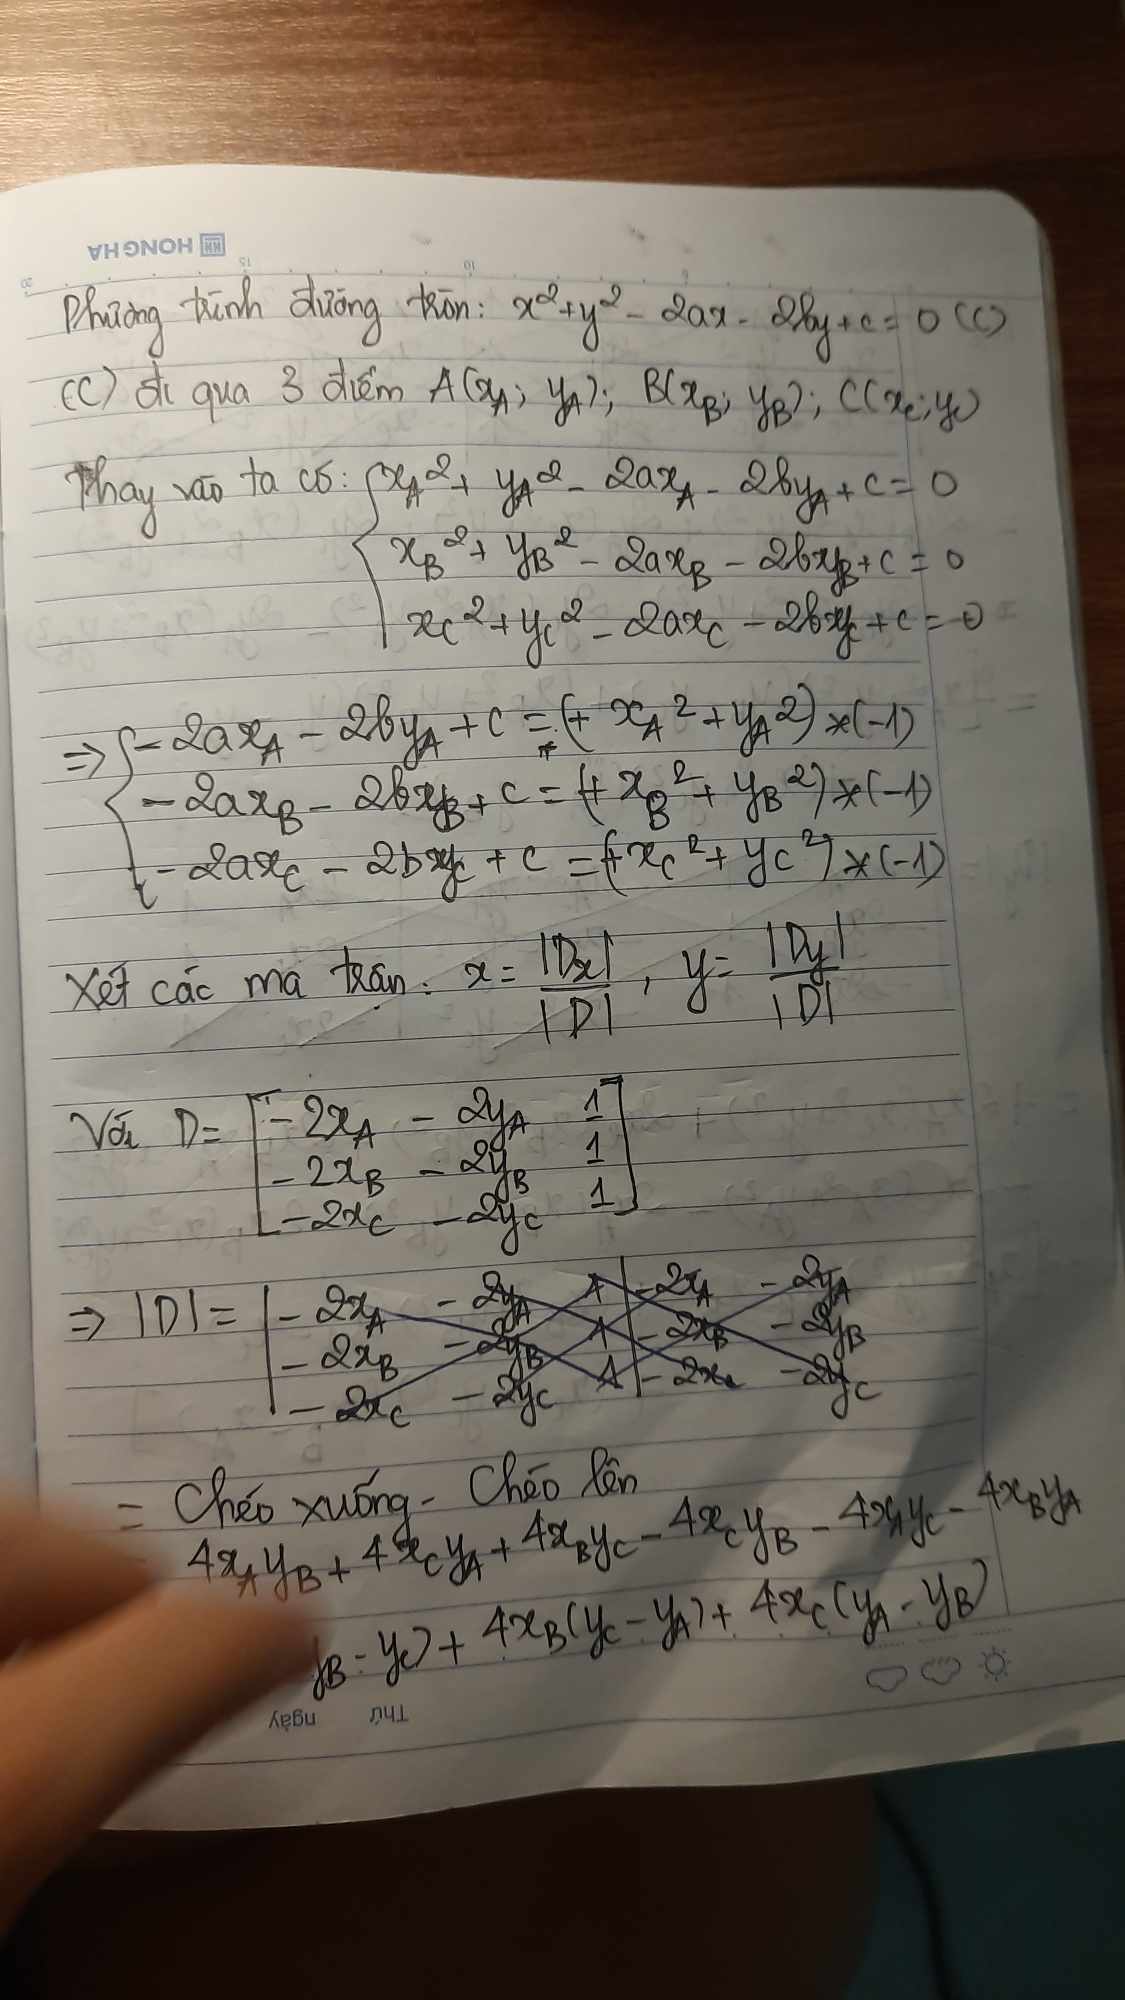 HONG HA
20 15 10
Phương trình đường tròn: x² + y² - 2ax - 2by + c = 0 (C)
(C) đi qua 3 điểm A(x_A; y_A); B(x_B; y_B); C(x_C; y_C)
Thay vào ta có: { x_A² + y_A² - 2ax_A - 2by_A + c = 0
x_B² + y_B² - 2ax_B - 2by_B + c = 0
x_C² + y_C² - 2ax_C - 2by_C + c = 0
⇒ { - 2ax_A - 2by_A + c = (+ x_A² + y_A²) * (-1)
- 2ax_B - 2by_B + c = (+ x_B² + y_B²) * (-1)
- 2ax_C - 2by_C + c = (+ x_C² + y_C²) * (-1)
Xét các ma trận: x = |Dx| / |D| , y = |Dy| / |D|
Với D = [ - 2x_A - 2y_A 1
- 2x_B - 2y_B 1
- 2x_C - 2y_C 1 ]
⇒ |D| = | - 2x_A - 2y_A 1 | - 2x_A - 2y_A
- 2x_B - 2y_B 1 | - 2x_B - 2y_B
- 2x_C - 2y_C 1 | - 2x_C - 2y_C
= Chéo xuống - Chéo lên
4x_A y_B + 4x_C y_A + 4x_B y_C - 4x_C y_B - 4x_A y_C - 4x_B y_A
y_B - y_C) + 4x_B(y_C - y_A) + 4x_C(y_A - y_B)
Thứ ngày